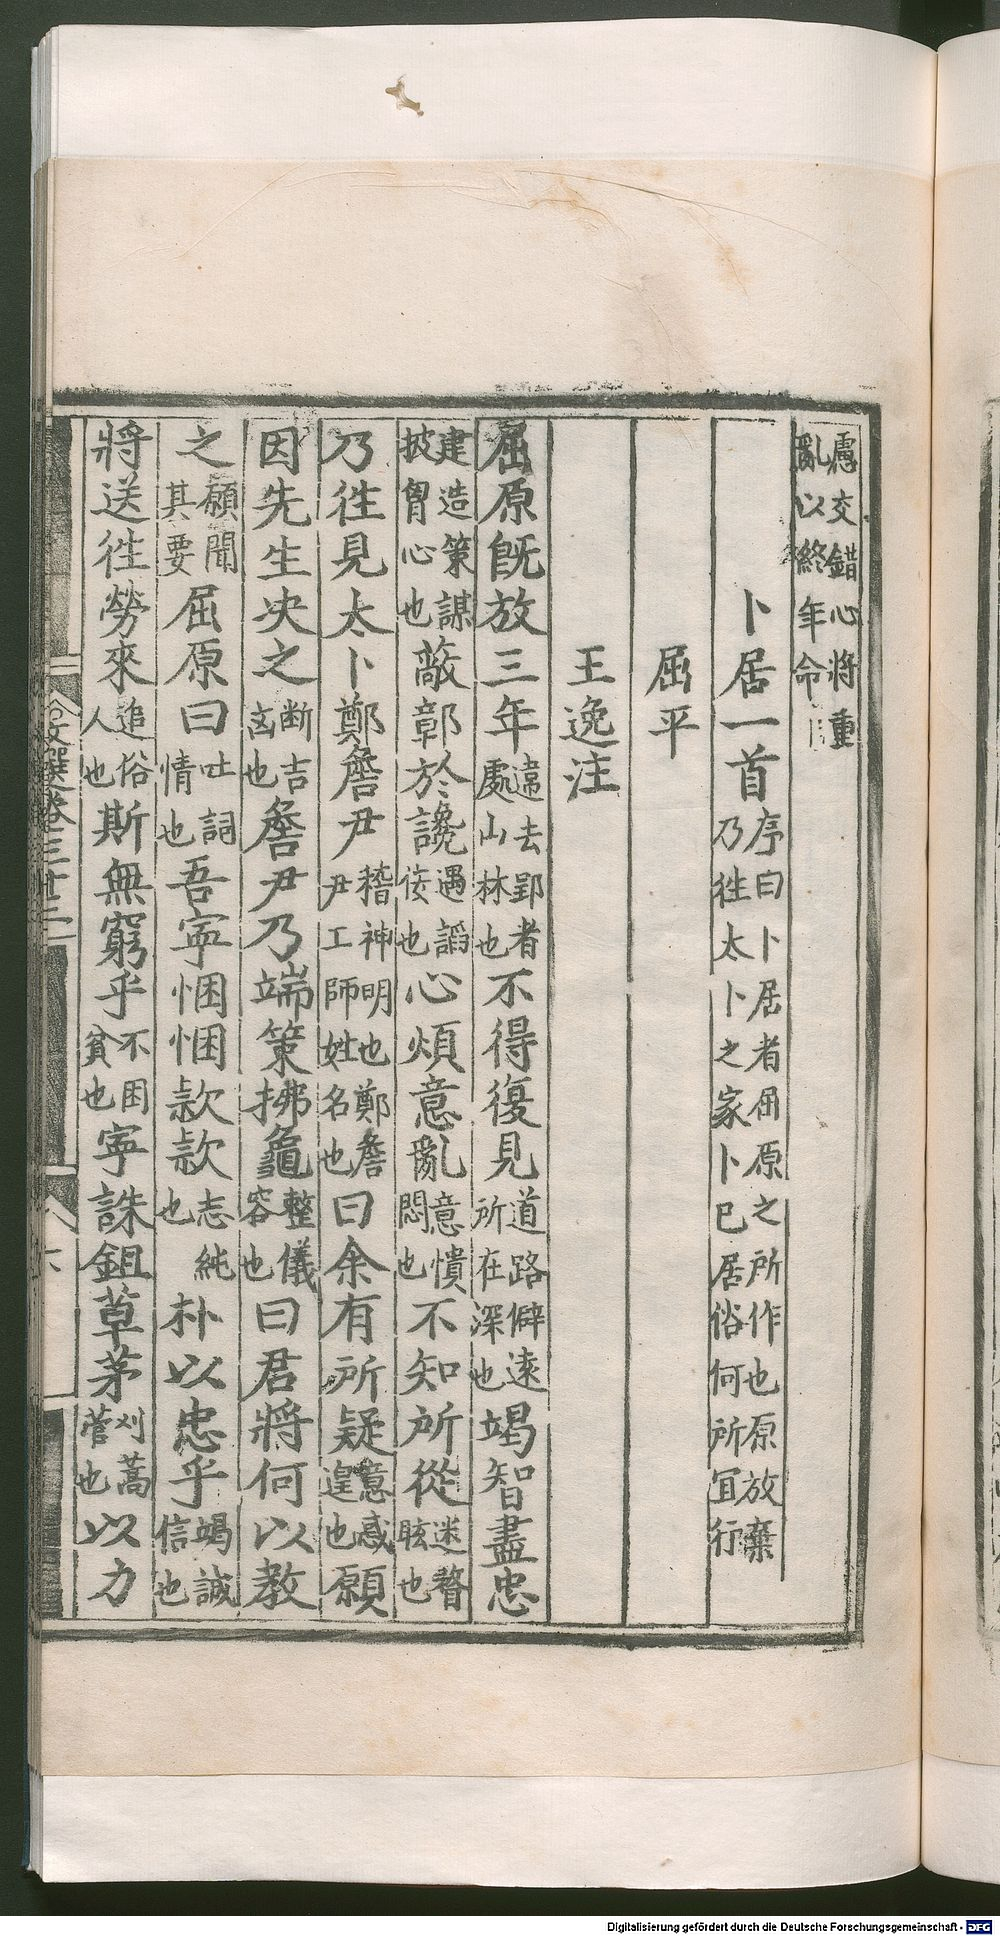 慮交錯心將重
亂以終年命
卜居一首序曰卜居者屈原之所作也原放棄
乃徃太卜之家卜己居俗何所冝行
屈平
王逸注
屈原旣放三年逺去郢者處山林也不得復見道路僻逺所在深也竭智盡忠
建造策謀披胷心也蔽鄣於讒遇讒佞也心煩意亂意憒悶也不知所從迷瞀眩也
乃徃見太卜鄭詹尹稽神明也鄭詹尹工師姓名也曰余有所疑意惑遑也願
因先生决之断吉㐫也詹尹乃端策拂龜整儀容也曰君將何以教
之願聞其要屈原曰吐詞情也吾寜悃悃款款志純也朴以忠乎竭誠信也
將送徃勞來追俗人也斯無窮乎不困貧也寜誅鉏草茅刈蒿菅也以力
文選卷三十三
六
Digitalisierung gefördert durch die Deutsche Forschungsgemeinschaft - DFG